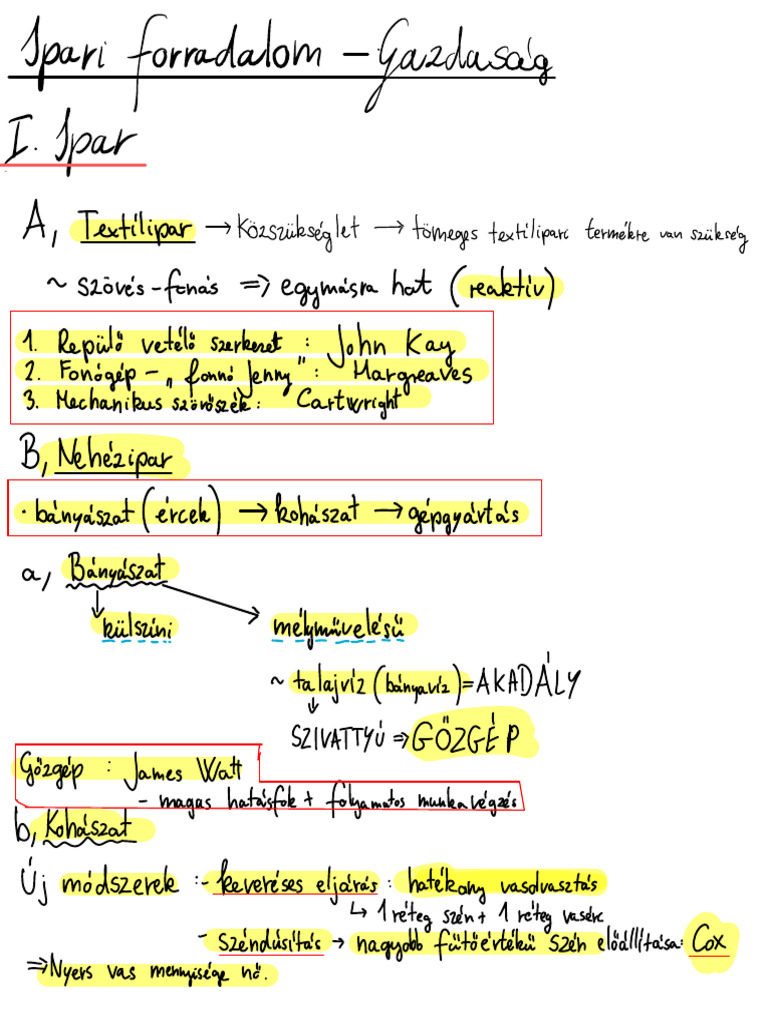 Ipari forradalom - Gazdaság
I. Ipar
A, Textilipar → Közszükséglet → tömeges textilipari termékre van szükség
~ szövés-fonás => egymásra hat (reaktív)
1. Repülő vetélő szerkezet : John Kay
2. Fonógép - „fonnó Jenny" : Margreaves
3. Mechanikus szövőszék: Cartwright
B, Nehézipar
· bányászat (ércek) → kohászat → gépgyártás
a, Bányászat
külszíni mélyművelésű
~ talajvíz (bányavíz) = AKADÁLY
↓
SZIVATTYÚ => GŐZGÉP
Gőzgép : James Watt
- magas hatásfok + folyamatos munkavégzés
b, Kohászat
Új módszerek :- keveréses eljárás : hatékony vasolvasztás
↳ 1 réteg szén + 1 réteg vasérc
- széndúsítás → nagyobb fűtőértékű szén előállítása: Cox
=> Nyers vas mennyisége nő.